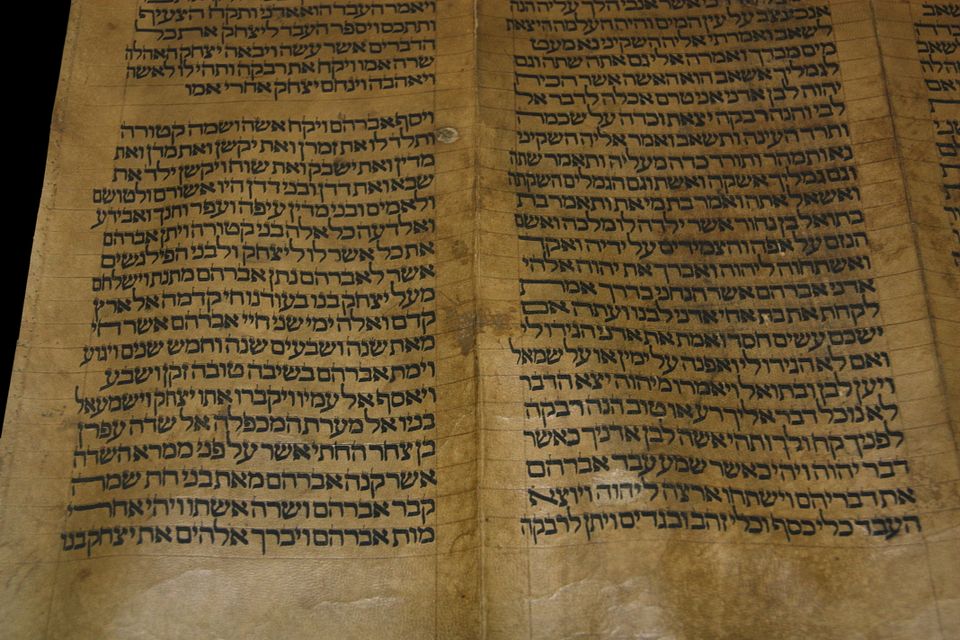 אשר אנכי הלך עליה הנה
אנכי נצב על עין המים והיה העלמה היצאת
לשאב ואמרתי אליה השקיני נא מעט
מים מכדך ואמרה אלי גם אתה שתה וגם
לגמליך אשאב הוא האשה אשר הכיח
יהוה לבן אדני אני טרם אכלה לדבר אל
לבי והנה רבקה יצאת וכדה על שכמה
ותרד העינה ותשאב ואמר אליה השקיני
נא ותמהר ותורד כדה מעליה ותאמר שתה
וגם גמליך אשקה ואשת וגם הגמלים השקתה
ואשאל אתה ואמר בת מי את ותאמר בת
בתואל בן נחור אשר ילדה לו מלכה ואשם
הנזם על אפה והצמידים על ידיה ואקד
ואשתחוה ליהוה ואברך את יהוה אלהי
אדני אברהם אשר הנחני בדרך אמת
לקחת את בת אחי אדני לבנו ועתה אם
ישכם עשים חסד ואמת את אדני הגידו לי
ואם לא הגידו לי ואפנה על ימין או על שמאל
ויען לבן ובתואל ויאמרו מיהוה יצא הדבר
לא נוכל דבר אליך רע או טוב הנה רבקה
לפניך קח ולך ותהי אשה לבן אדניך כאשר
דבר יהוה ויהי כאשר שמע עבד אברהם
את דבריהם וישתחו ארצה ליהוה ויוצא
העבד כלי כסף וכלי זהב ובגדים ויתן לרבקה
ויאמר העבד הוא אדני ותקח הצעיף
ותתכס ויספר העבד ליצחק את כל
הדברים אשר עשה ויבאה יצחק האהלה
שרה אמו ויקח את רבקה ותהי לו לאשה
ויאהבה וינחם יצחק אחרי אמו
ויסף אברהם ויקח אשה ושמה קטורה
ותלד לו את זמרן ואת יקשן ואת מדן ואת
מדין ואת ישבק ואת שוח ויקשן ילד את
שבא ואת דדן ובני דדן היו אשורם ולטושם
ולאמים ובני מדין עיפה ועפר וחנך ואבידע
ואלדעה כל אלה בני קטורה ויתן אברהם
את כל אשר לו ליצחק ולבני הפילגשים
אשר לאברהם נתן אברהם מתנת וישלחם
מעל יצחק בנו בעודנו חי קדמה אל ארץ
קדם ואלה ימי שני חיי אברהם אשר חי
מאת שנה ושבעים שנה וחמש שנים ויגוע
וימת אברהם בשיבה טובה זקן ושבע
ויאסף אל עמיו ויקברו אתו יצחק וישמעאל
בניו אל מערת המכפלה אל שדה עפרן
בן צחר החתי אשר על פני ממרא השדה
אשר קנה אברהם מאת בני חת שמה
קבר אברהם ושרה אשתו ויהי אחרי
מות אברהם ויברך אלהים את יצחק בנו